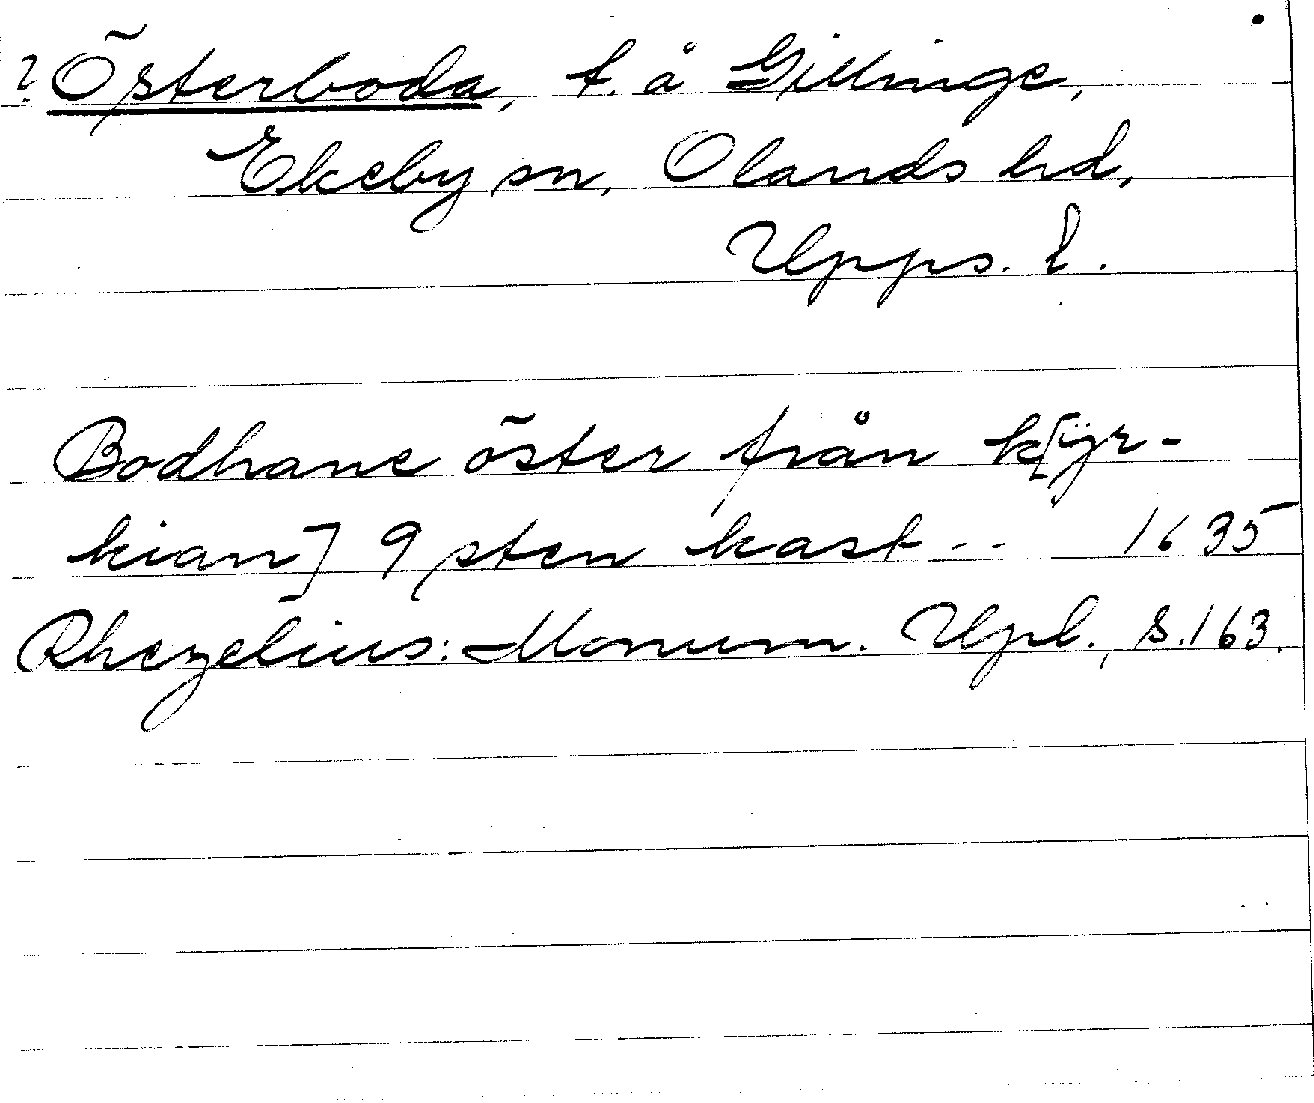 ? Österboda, t. å Gillinge,
Ekeby sn, Olands hd,
Upps. l.
Bodhane öster från k[ÿr-
kian] 9 sten kast -- 1635
Rhezelius: Monum. Upl., s. 163.